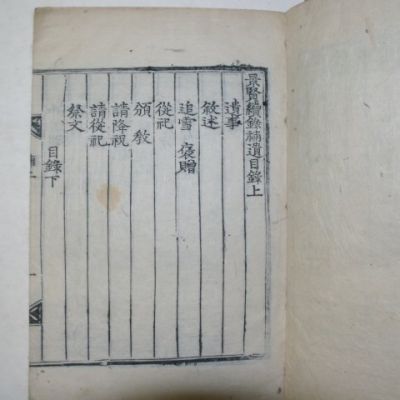 景賢續錄補遺目錄上
遺事
敘述
追雪 褒贈
從祀
頒教
請降祝
請從祀
祭文
目錄下